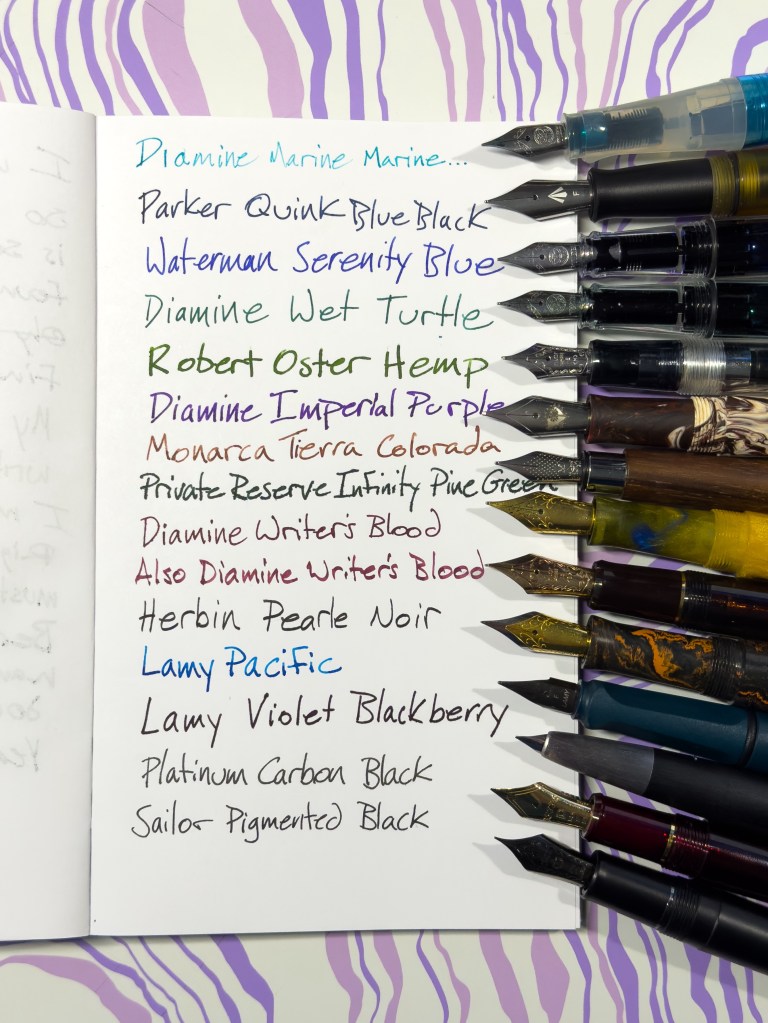 Diamine Marine Marine...
Parker Quink Blue Black
Waterman Serenity Blue
Diamine Wet Turtle
Robert Oster Hemp
Diamine Imperial Purple
Monarca Tierra Colorada
Private Reserve Infinity Pine Green
Diamine Writer's Blood
Also Diamine Writer's Blood
Herbin Pearle Noir
Lamy Pacific
Lamy Violet Blackberry
Platinum Carbon Black
Sailor Pigmented Black